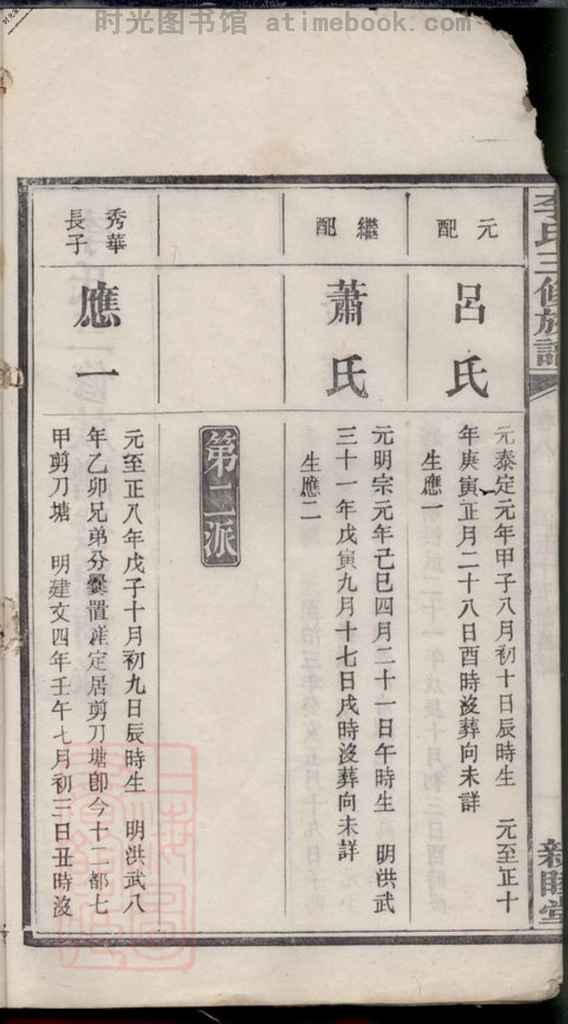 时光图书馆 atimebook.com
李氏三修族譜
新睦堂
元配
呂氏
元泰定元年甲子八月初十日辰時生 元至正十
年庚寅正月二十八日酉時沒葬向未詳
生應一
繼配
蕭氏
元明宗元年己巳四月二十一日午時生 明洪武
三十一年戊寅九月十七日戌時沒葬向未詳
生應二
第二派
秀華
長子
應一
元至正八年戊子十月初九日辰時生 明洪武八
年乙卯兄弟分爨置產定居剪刀塘卽今十二都七
甲剪刀塘 明建文四年壬午七月初三日丑時沒